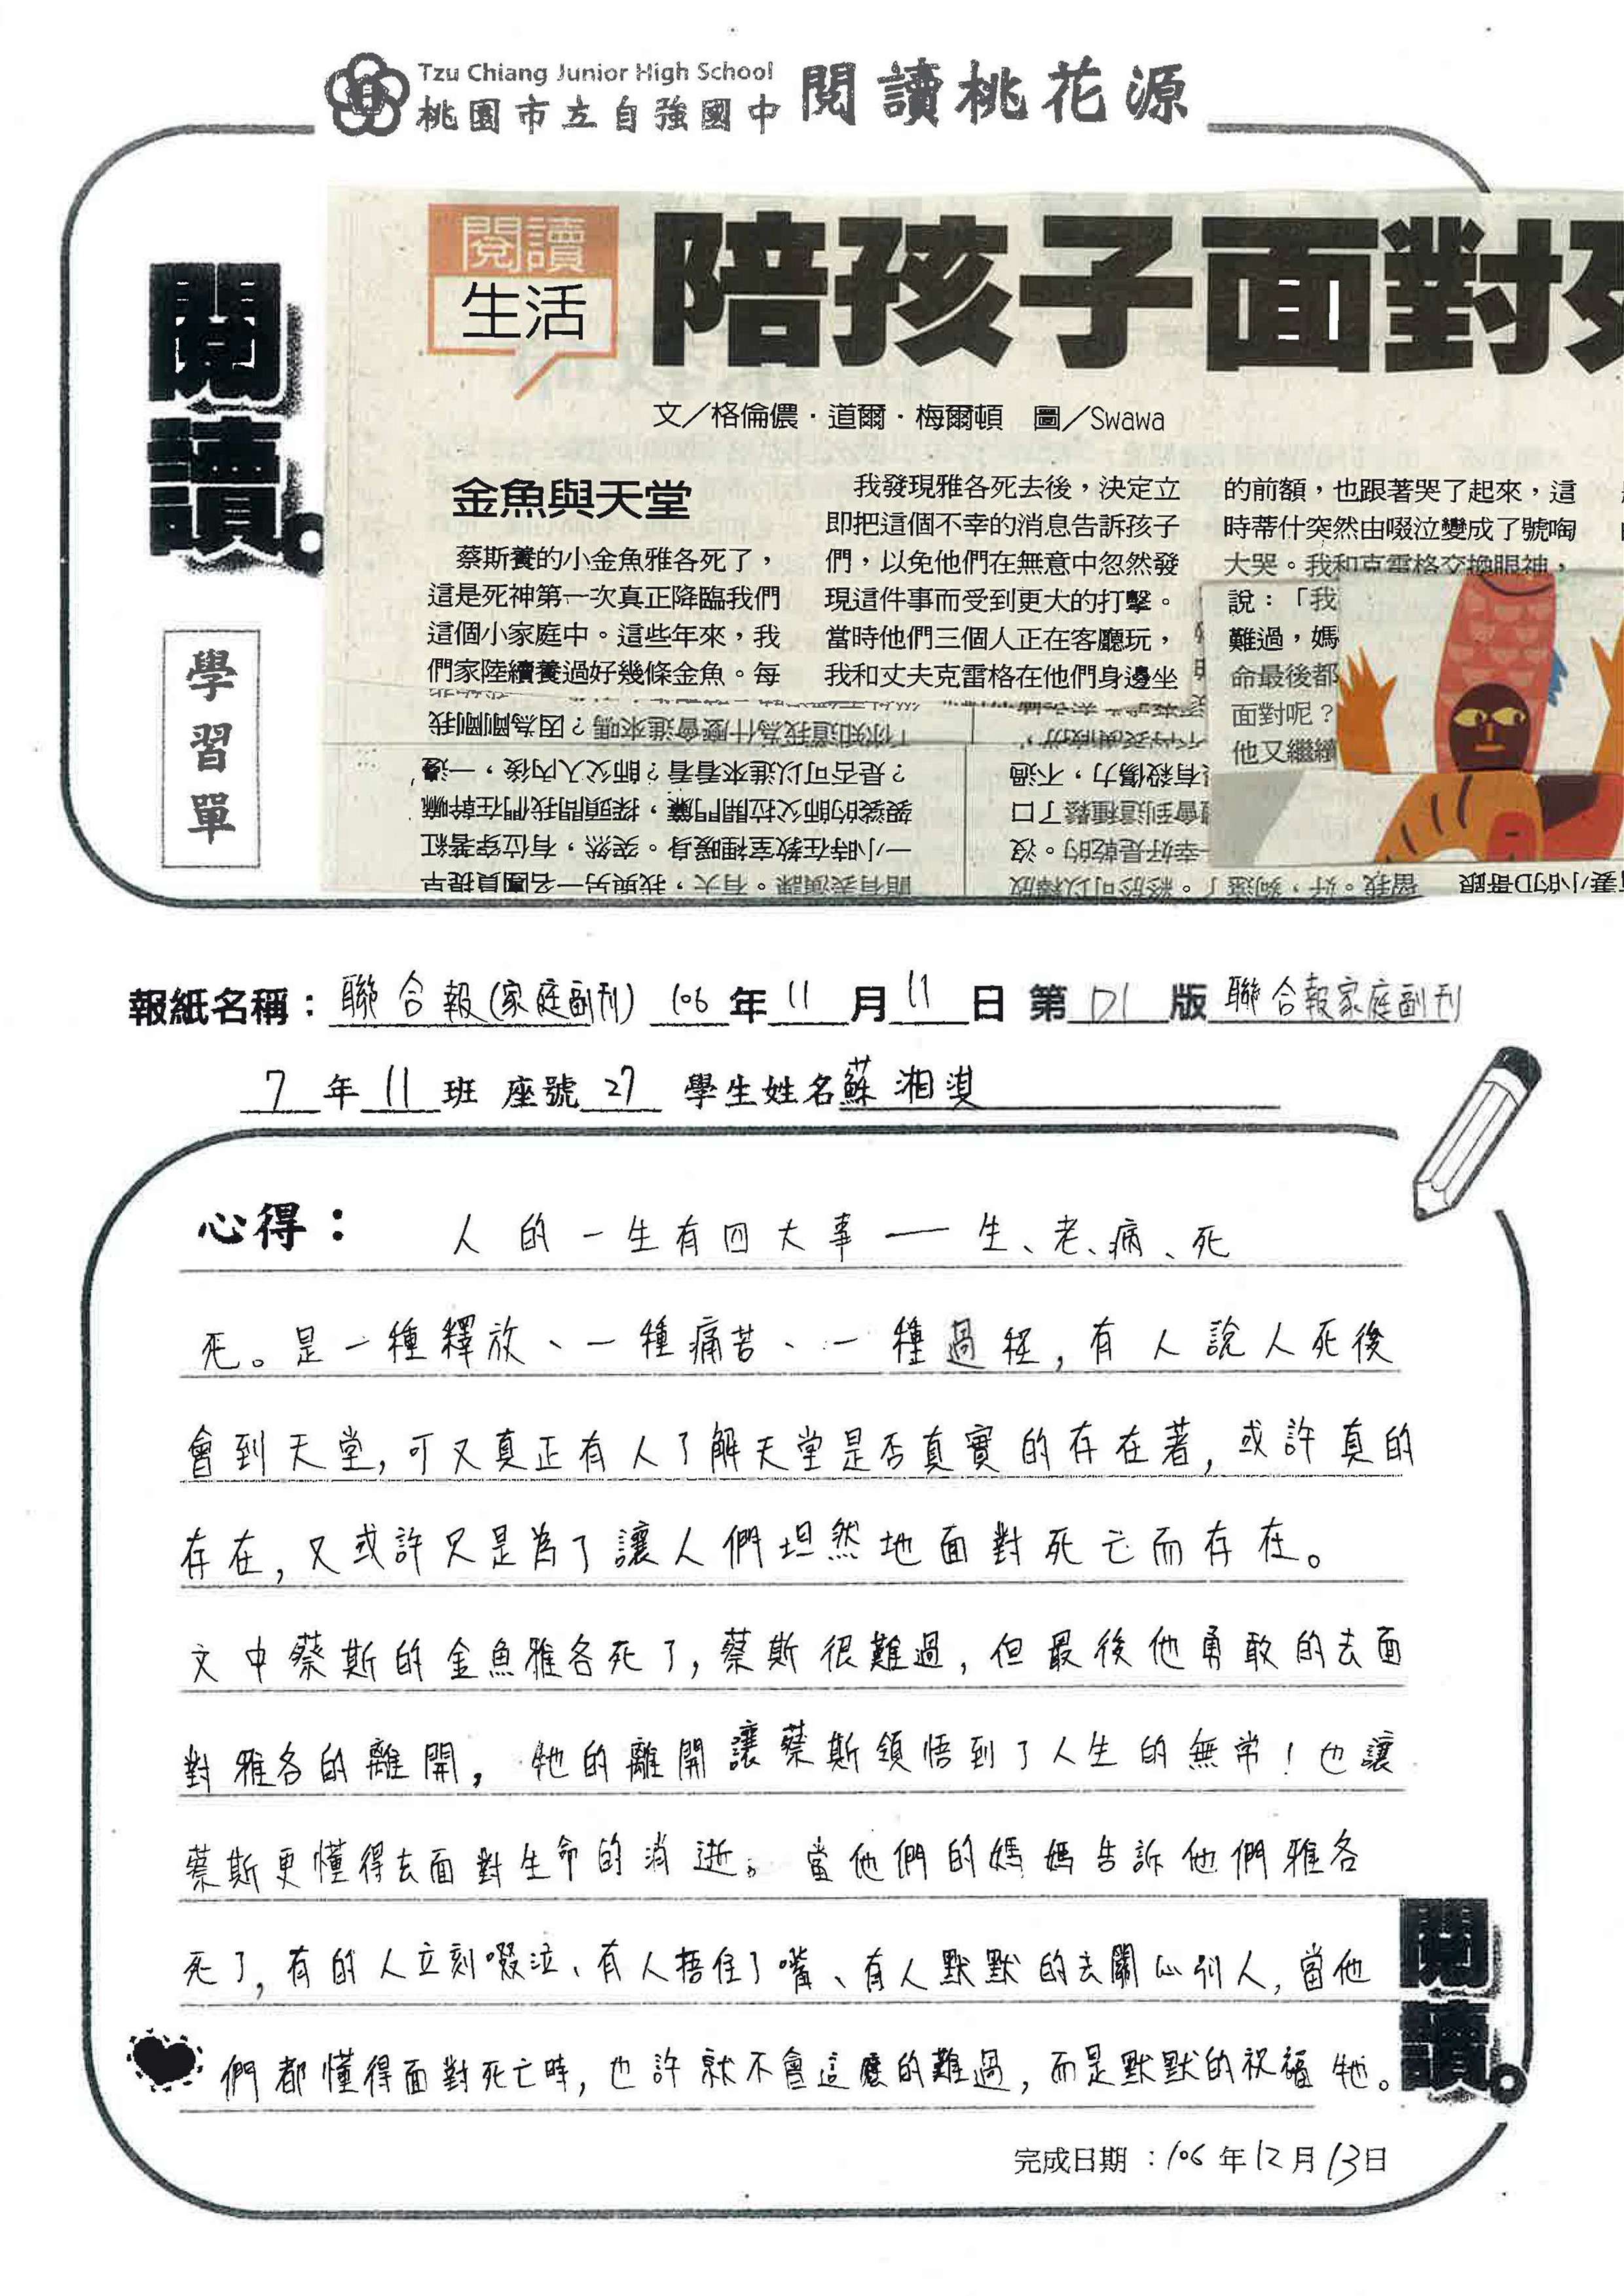 Tzu Chiang Junior High School
桃園市立自強國中
閱讀桃花源
閱讀。
學習單
閱讀
生活
陪孩子面對
文／格倫儂·道爾·梅爾頓 圖／Swawa
金魚與天堂
蔡斯養的小金魚雅各死了，
這是死神第一次真正降臨我們
這個小家庭中。這些年來，我
們家陸續養過好幾條金魚。每
我發現雅各死去後，決定立
即把這個不幸的消息告訴孩子
們，以免他們在無意中忽然發
現這件事而受到更大的打擊。
當時他們三個人正在客廳玩，
我和丈夫克雷格在他們身邊坐
的前額，也跟著哭了起來，這
時蒂什突然由啜泣變成了號啕
大哭。我和克雷格交換眼神，
說：「我
難過，媽
命最後都
面對呢？
他又繼續
期有表演課。有天，我與另一名團員提早
一小時在教室裡暖身。突然，有位穿著紅
袈裟的師父拉開門簾，探頭問我們在幹嘛
？是否可以進來看看？師父入內後，一邊
「你知道我為什麼會進來嗎？因為剛剛我
報紙名稱：聯合報(家庭副刊) 106年11月11日 第D1版聯合報家庭副刊
7年11班 座號27 學生姓名蘇湘淇
心得： 人的一生有四大事——生、老、病、死
死。是一種釋放、一種痛苦、一種過程，有人說人死後
會到天堂，可又真正有人了解天堂是否真實的存在著，或許真的
存在，又或許只是為了讓人們坦然地面對死亡而存在。
文中蔡斯的金魚雅各死了，蔡斯很難過，但最後他勇敢的去面
對雅各的離開，牠的離開讓蔡斯領悟到了人生的無常！也讓
蔡斯更懂得去面對生命的消逝。當他們的媽媽告訴他們雅各
死了，有的人立刻啜泣、有人捂住了嘴、有人默默的去關心別人，當他
們都懂得面對死亡時，也許就不會這麼的難過，而是默默的祝福牠。
閱讀。
完成日期：106年12月13日